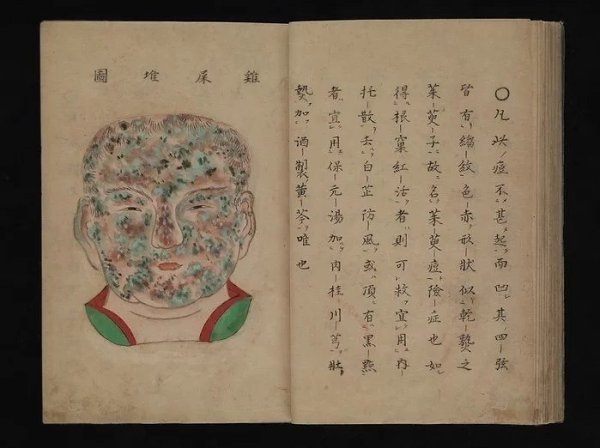 〇凡此痘不甚起而凹其四弦
皆有縐紋色赤形狀似乾之
茱萸子故名茱萸痘險症也如
得根窠紅活者則可救宜用內
托散去白芷防風或頂有黑點
者宜用保元湯加肉桂川芎壯
熱加酒製黃芩唯也
雞屎堆圖